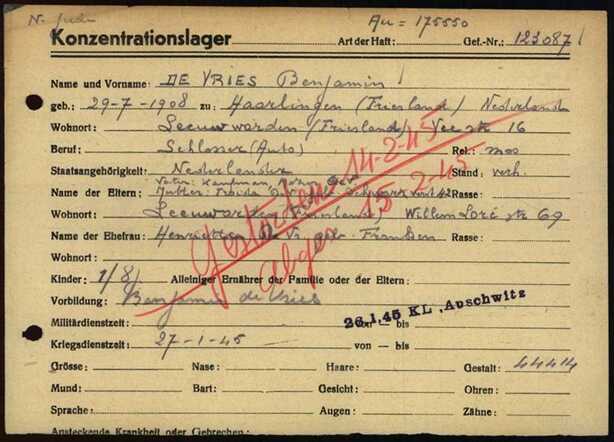 N. Jude Au = 175550
Konzentrationslager Art der Haft: Gef.-Nr.: 123087
Name und Vorname: DE VRIES Benjamin
geb.: 29-7-1908 zu: Haarlingen (Friesland) Nederland
Wohnort: Leeuwarden (Friesland) Vee str 16
Beruf: Schlosser (Auto) Rel.: mos
Staatsangehörigkeit: Nederlander Stand: verh.
Vater: Kaufman,
Name der Eltern: Mutter: Rasse:
Wohnort: Leeuwarden Friesland, Willem Loré str 69
Name der Ehefrau: Henriette de Vr. geb. Franken Rasse:
Wohnort:
Gestorben 14-2-45
Abges 15-2-45
Kinder: 1/8 Alleiniger Ernährer der Familie oder der Eltern:
Vorbildung: Benjamin de Vries
26.1.45 KL. Auschwitz
Militärdienstzeit: von – bis
Kriegsdienstzeit: 27-1-45 von – bis
Grösse: Nase: Haare: Gestalt: 44414
Mund: Bart: Gesicht: Ohren:
Sprache: Augen: Zähne:
Ansteckende Krankheit oder Gebrechen: